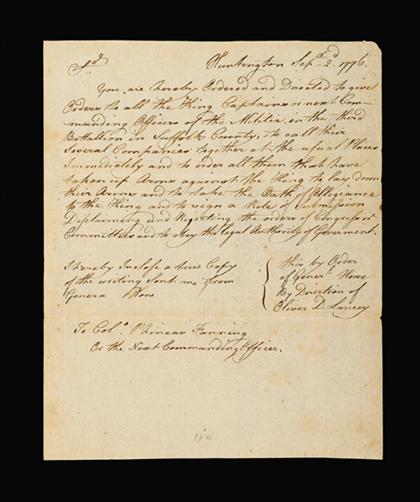 Sr Huntington Sepr 2d 1776.
You are hereby Ordered and Directed to give
Orders to all the King Captains or next Com-
manding Officers of the Militia, in the third
Battallion in Suffolk County, to call their
Several Companies together at the usual Places
Immediately and to order all them that have
taken up Arms against the King to lay down
their Arms and to take the Oath of Allegiance
to the King and to sign a Role of submission
Disclaiming and Rejecting the orders of Congress or
Committees and to obey the legal Authority of Goverment.
I hereby Inclose a true Copy
of the writing Sent me from
Genera How
this by Order
of Generl Howe
By Direction of
Oliver D. Lancey
To Colo. Phineas Fanning
Or the Next Commanding Officer.